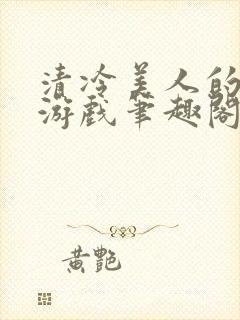 清冷美人的
游戏笔趣阁
黄艳